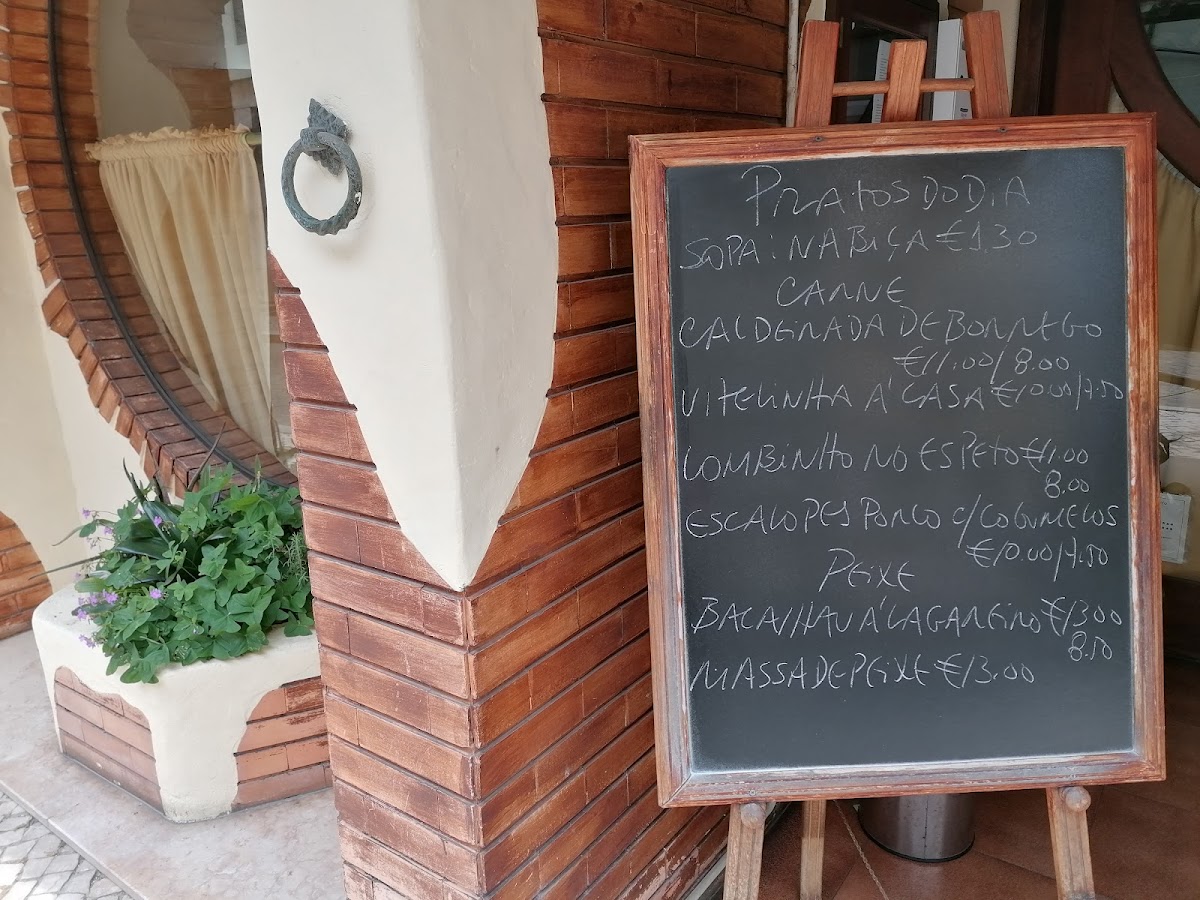 PRATOS DO DIA
SOPA: NABIÇA €1.30
CARNE
CALDEIRADA DE BORREGO
€11.00/8.00
VITELINHA Á CASA €10.00/7.50
LOMBINHO NO ESPETO €11.00
8.00
ESCALOPES PORCO C/COGUMELOS
€10.00/7.50
PEIXE
BACALHAU Á LAGAREIRO €13.00
8.50
MASSA DE PEIXE €13.00